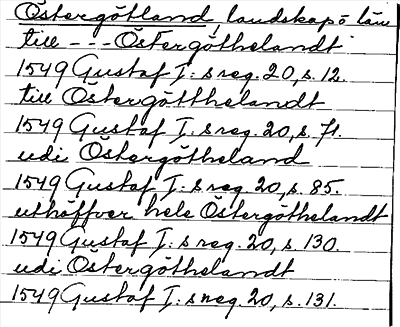 Östergötland, landskap o län
till - - - Östergöthelandt
1549 Gustaf I:s reg. 20, s. 12.
till Östergötthelandt
1549 Gustaf I:s reg. 20, s. 71.
udi Östergötheland
1549 Gustaf I:s reg. 20, s. 85.
uthöffver hele Östergöthelandt
1549 Gustaf I:s reg. 20, s. 130.
udi Östergöthelandt
1549 Gustaf I:s reg. 20, s. 131.